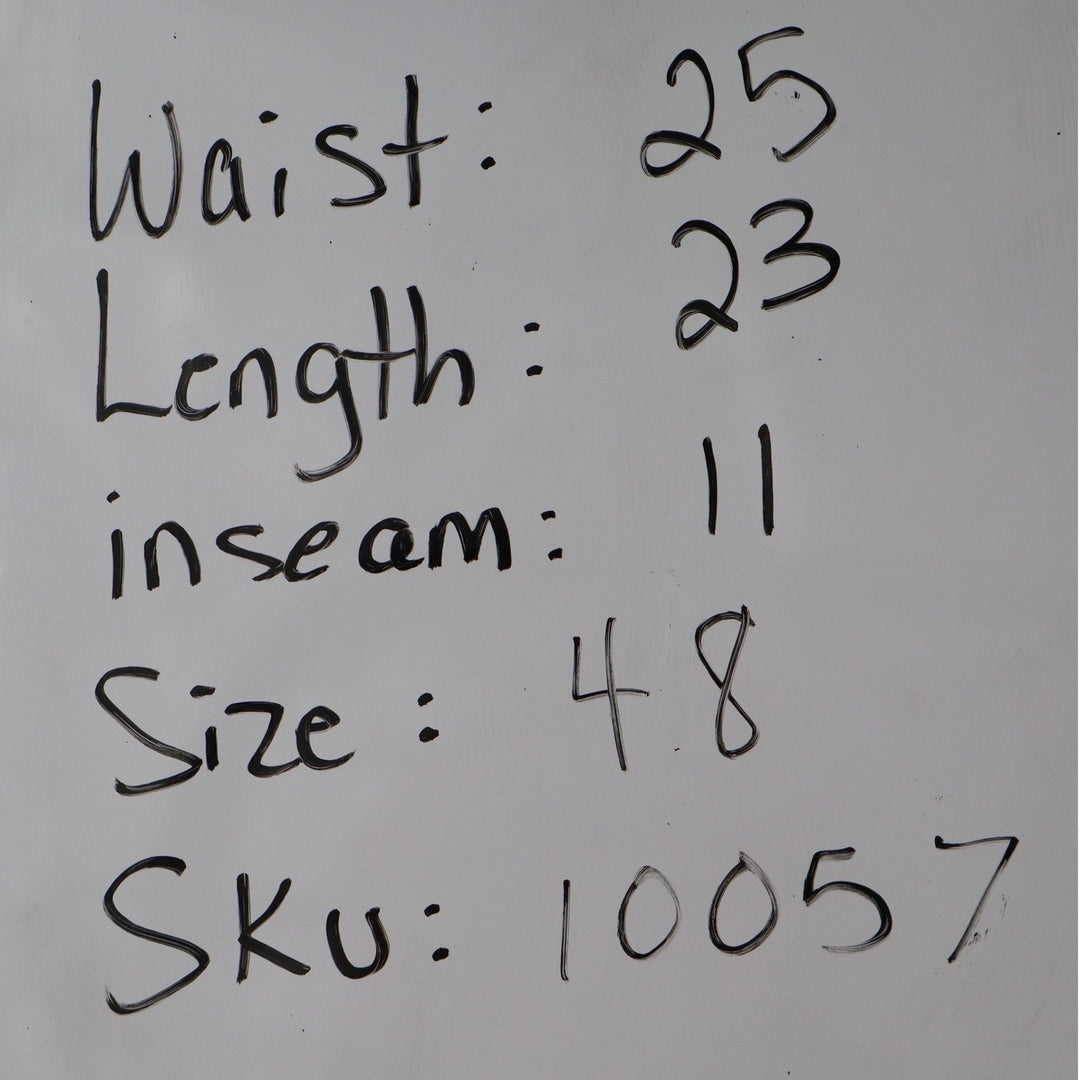 Waist: 25
Length: 23
inseam: 11
Size: 48
SKU: 10057